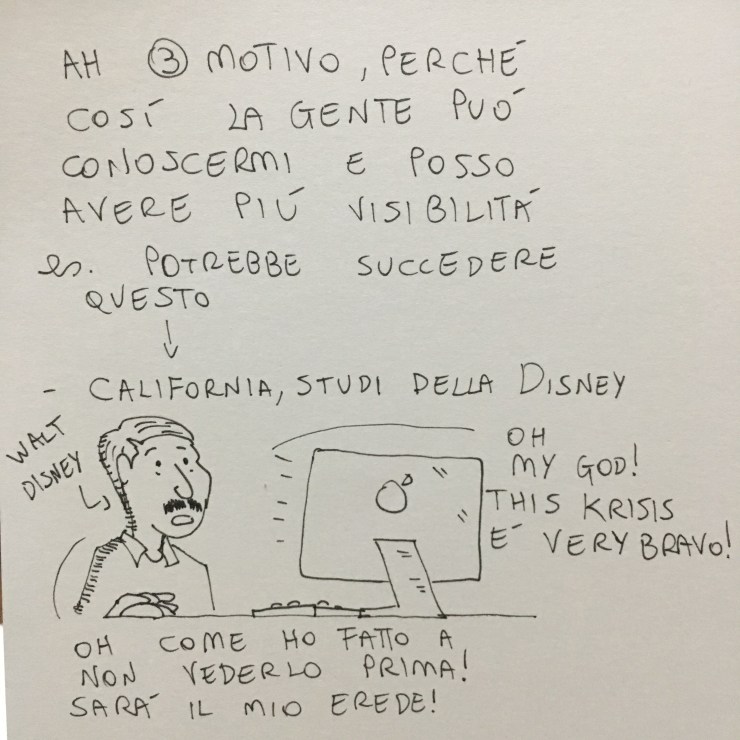 AH ③ MOTIVO, PERCHÉ
COSÍ LA GENTE PUÓ
CONOSCERMI E POSSO
AVERE PIÚ VISIBILITÁ
es. POTREBBE SUCCEDERE
QUESTO
- CALIFORNIA, STUDI DELLA DISNEY
WALT
DISNEY
OH
MY GOD!
THIS KRISIS
É VERY BRAVO!
OH COME HO FATTO A
NON VEDERLO PRIMA!
SARÁ IL MIO EREDE!